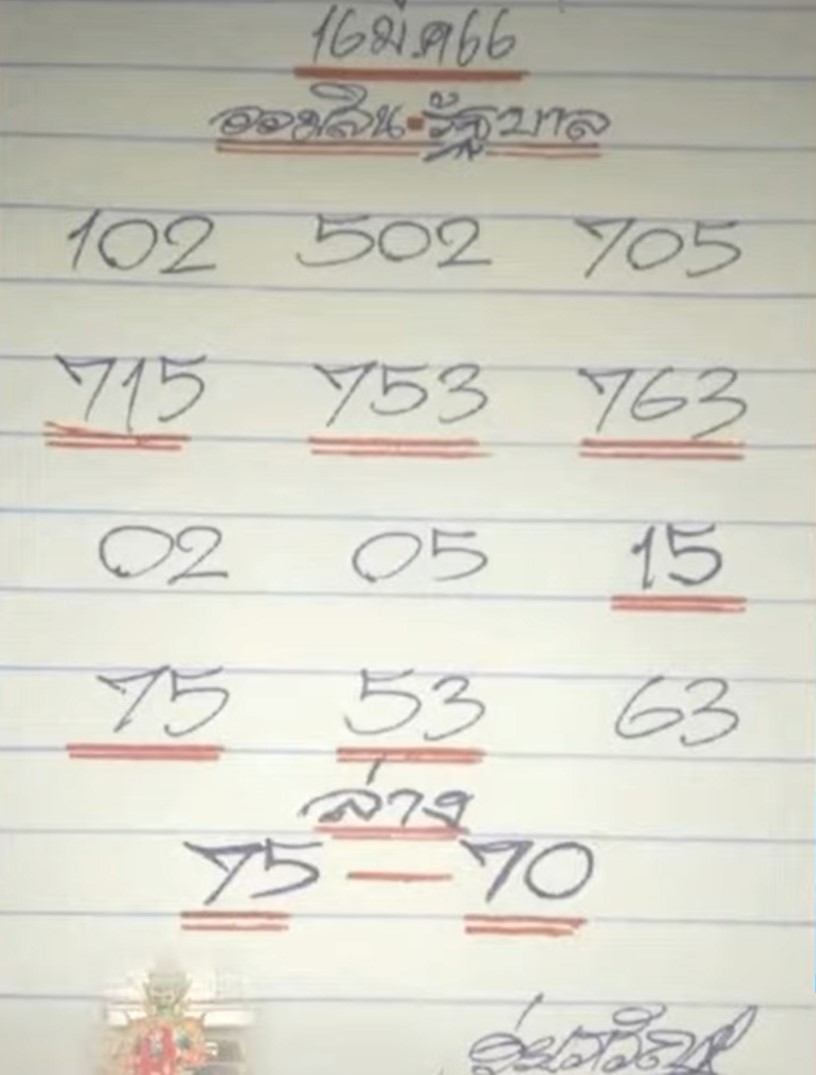 16มี.ค66
ออมสิน-รัฐบาล
102 502 705
715 753 763
02 05 15
75 53 63
ล่าง
75 — 70